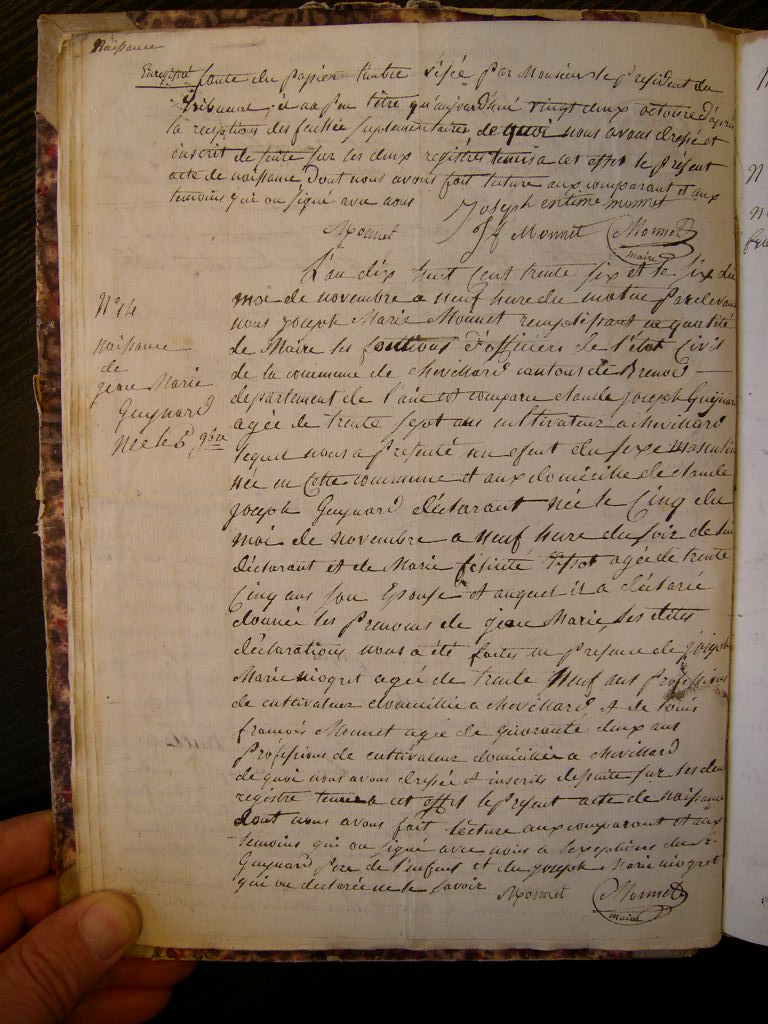 Naissance
Enregistré faute du papier timbre visée par Monsieur le président du
Tribunal, il na pu lêtre qu'aujourd'hui vingt deux octobre d'après
la réceptions des feuille suplementaires de quoi nous avous dressé et
inscrit de suite sur les deux registres tenus a cet effet le présent
acte de naissance dont nous avons fait lecture aux comparant et aux
temoins qui on signé avec nous Joseph entime monnet
Monnet Jf Monnet Monnet
maire
L'an dix huit Cent trente six et le six du
moi de novembre a neuf hure du matin Pardevant
nous joseph Marie Monnet remplissant en qualité
de Maire les fonctions d'officiers de l'état Civil
de la commune de chevillard cantons de Brenod
departement de l'ain est comparu claude joseph Guynard
agée de trente sept ans cultivateur a chevillard
lequel nous a présenté un efent du sexe masculin
née en Cette commune et aux domicille de claude
joseph Guynard déclarant née le Cinq du
moi de novembre a neuf hure du soir de lui
déclarant et de Marie félicité agée de trente
Cinq ans son Epouse et auquel il a déclarée
donnée les prenoms de jean Marie, les dites
déclarations nous a été faites en présence de joseph
Marie niogret agée de trente neuf ans profession
de cultivateur domicillie a chevillard et de louis
francois Monnet agée de quarante deux ans
Proféssions de cultivateur domicilliée a chevillard
de quoi nous avons dressée et inscrits desuite sur les deux
registre tenue a cet effet le présent acte de naissance
dont nous avons fait lecture aux comparant et aux
temoins qui on signé avec nous a l'exceptions du Sr
Guynard pere de l'enfent et du joseph Marie niogret
qui on déclarée ne le savoir Monnet Monnet
maire
N° 14
naissance
de
jean Marie
Guynard
née le 5 9bre